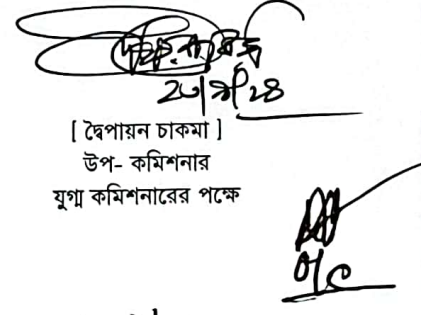 ২০/৯/২৪
[ দ্বৈপায়ন চাকমা ]
উপ- কমিশনার
যুগ্ম কমিশনারের পক্ষে
O/C